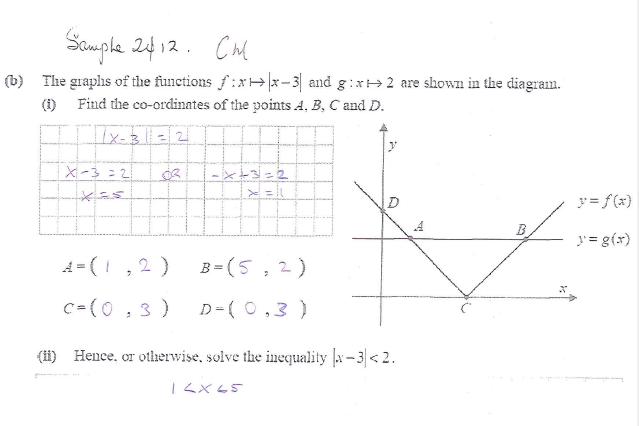 Sample 2012. CM
(b) The graphs of the functions f : x ↦ |x − 3| and g : x ↦ 2 are shown in the diagram.
(i) Find the co-ordinates of the points A, B, C and D.
|x-3| = 2
x-3 = 2 OR -x+3=2
x=5 x=1
A=(1, 2) B=(5, 2)
C=(0, 3) D=(0, 3)
y
D
A
B
C
x
y = f(x)
y = g(x)
(ii) Hence, or otherwise, solve the inequality |x − 3| < 2.
1<x<5